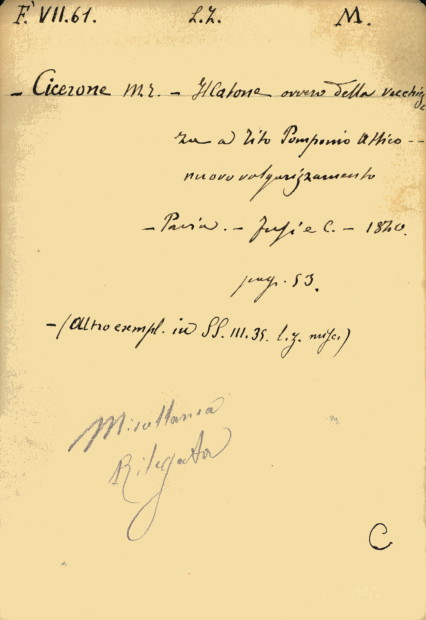 F. VII.61. L.Z. M.
- Cicerone M.T. - Il Catone ovvero della vecchiez
za a Tito Pomponio Attico --
nuovo volgarizzamento
- Pavia. - Fusi e C. - 1840.
pag. 53.
- (Altro esempl. in SS. III.35. l.z. misc.)
Miscellanea
Rilegata
C